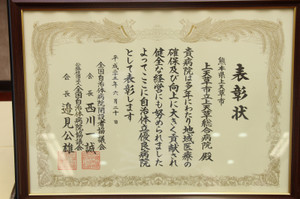 表彰状
熊本県上天草市
上天草市立上天草総合病院 殿
貴病院は多年にわたり地域医療の
確保及び向上に大きく貢献され
健全な経営にも努められました
よってここに自治体立優良病院
として表彰します
平成二十五年六月二十日
全国自治体病院開設者協議会
会長 西川一誠
公益社団法人全国自治体病院協議会
会長 邉見公雄